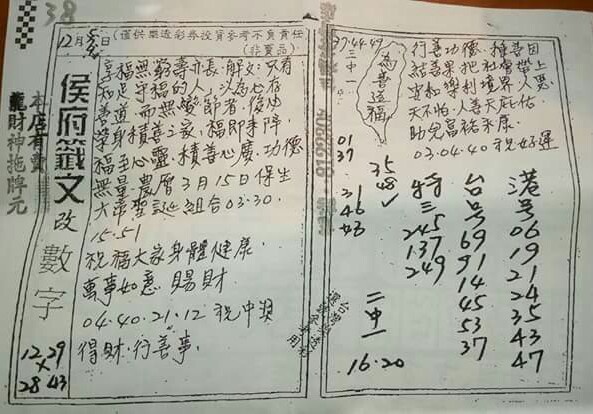 38
12月5日
(僅供開造彩券投資參考不負責任)
(非賣品)
侯府籤文
改
數字
本店有賣
龍財神拖牌元
享福無窮壽亦長,解文:只有
知足守福的人,以為心存
善道,而無變節者,
榮身積善之家,福即來降,
福至心靈,積善心慶,功德
無量,農曆3月15日保生
大帝聖誕組合03.30.
15.51
祝福大家身體健康.
萬事如意 賜財
04.40.21.12 祝中獎
得財.行善事.
12 29
×
28 43
37.44.49
二中一
為善造福
行善功德,種善因
結善果把社會帶上
安和樂利境界人惡
天不怕,人善天庇佑
助兒富裕永康.
03.04.40 祝好運
01
37
35
48✓
31
46
特三
245
137
249
台号
69
91
14
45
53
37
港号
06
19
21
24
35
43
47
二中一
16.20